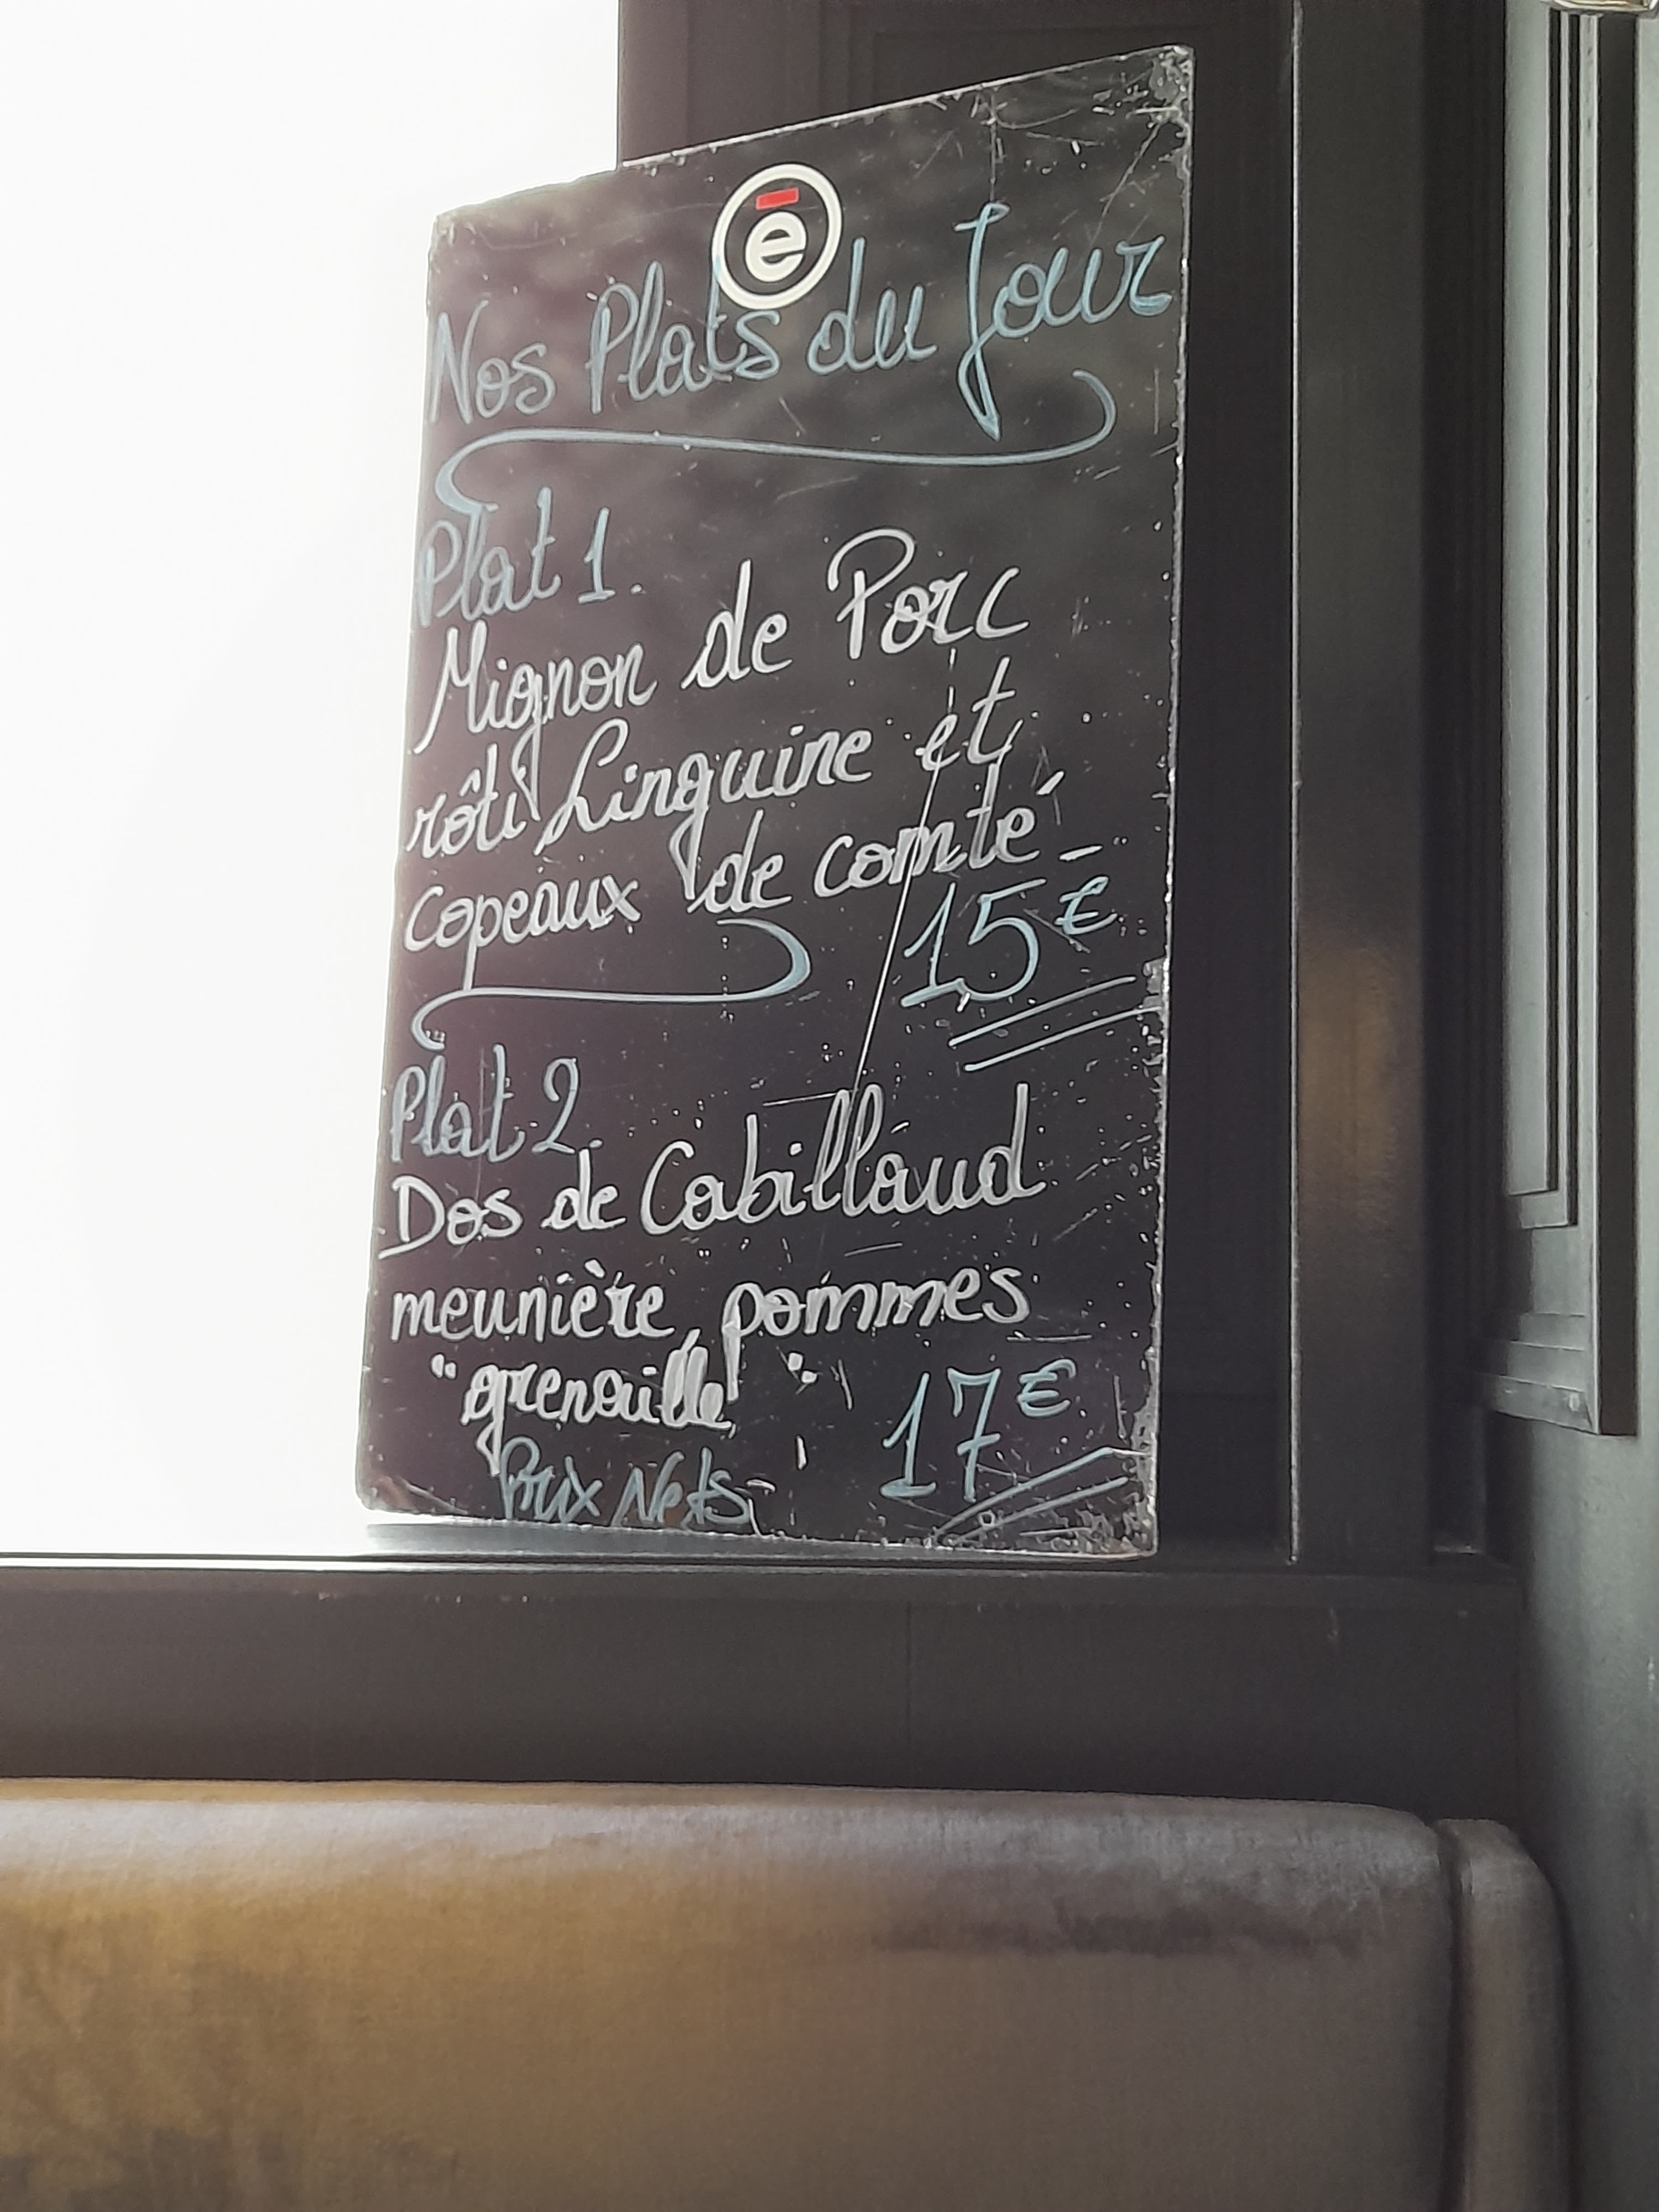 ē
Nos Plats du Jour
Plat 1.
Mignon de Porc
rôti Linguine et
copeaux de comté
15€
Plat 2.
Dos de Cabillaud
meunière, pommes
"grenaille"
17€
Prix Nets